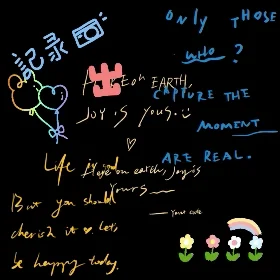 記录
Only THOSE
WHO ?
CAPTURE THE
MOMENT
ARE REAL.
ON EARTH,
JOY IS YOUS.
Life is
on earth, Joy is
Yours
But you should
cherish it Let's
be happy today.
Your cute